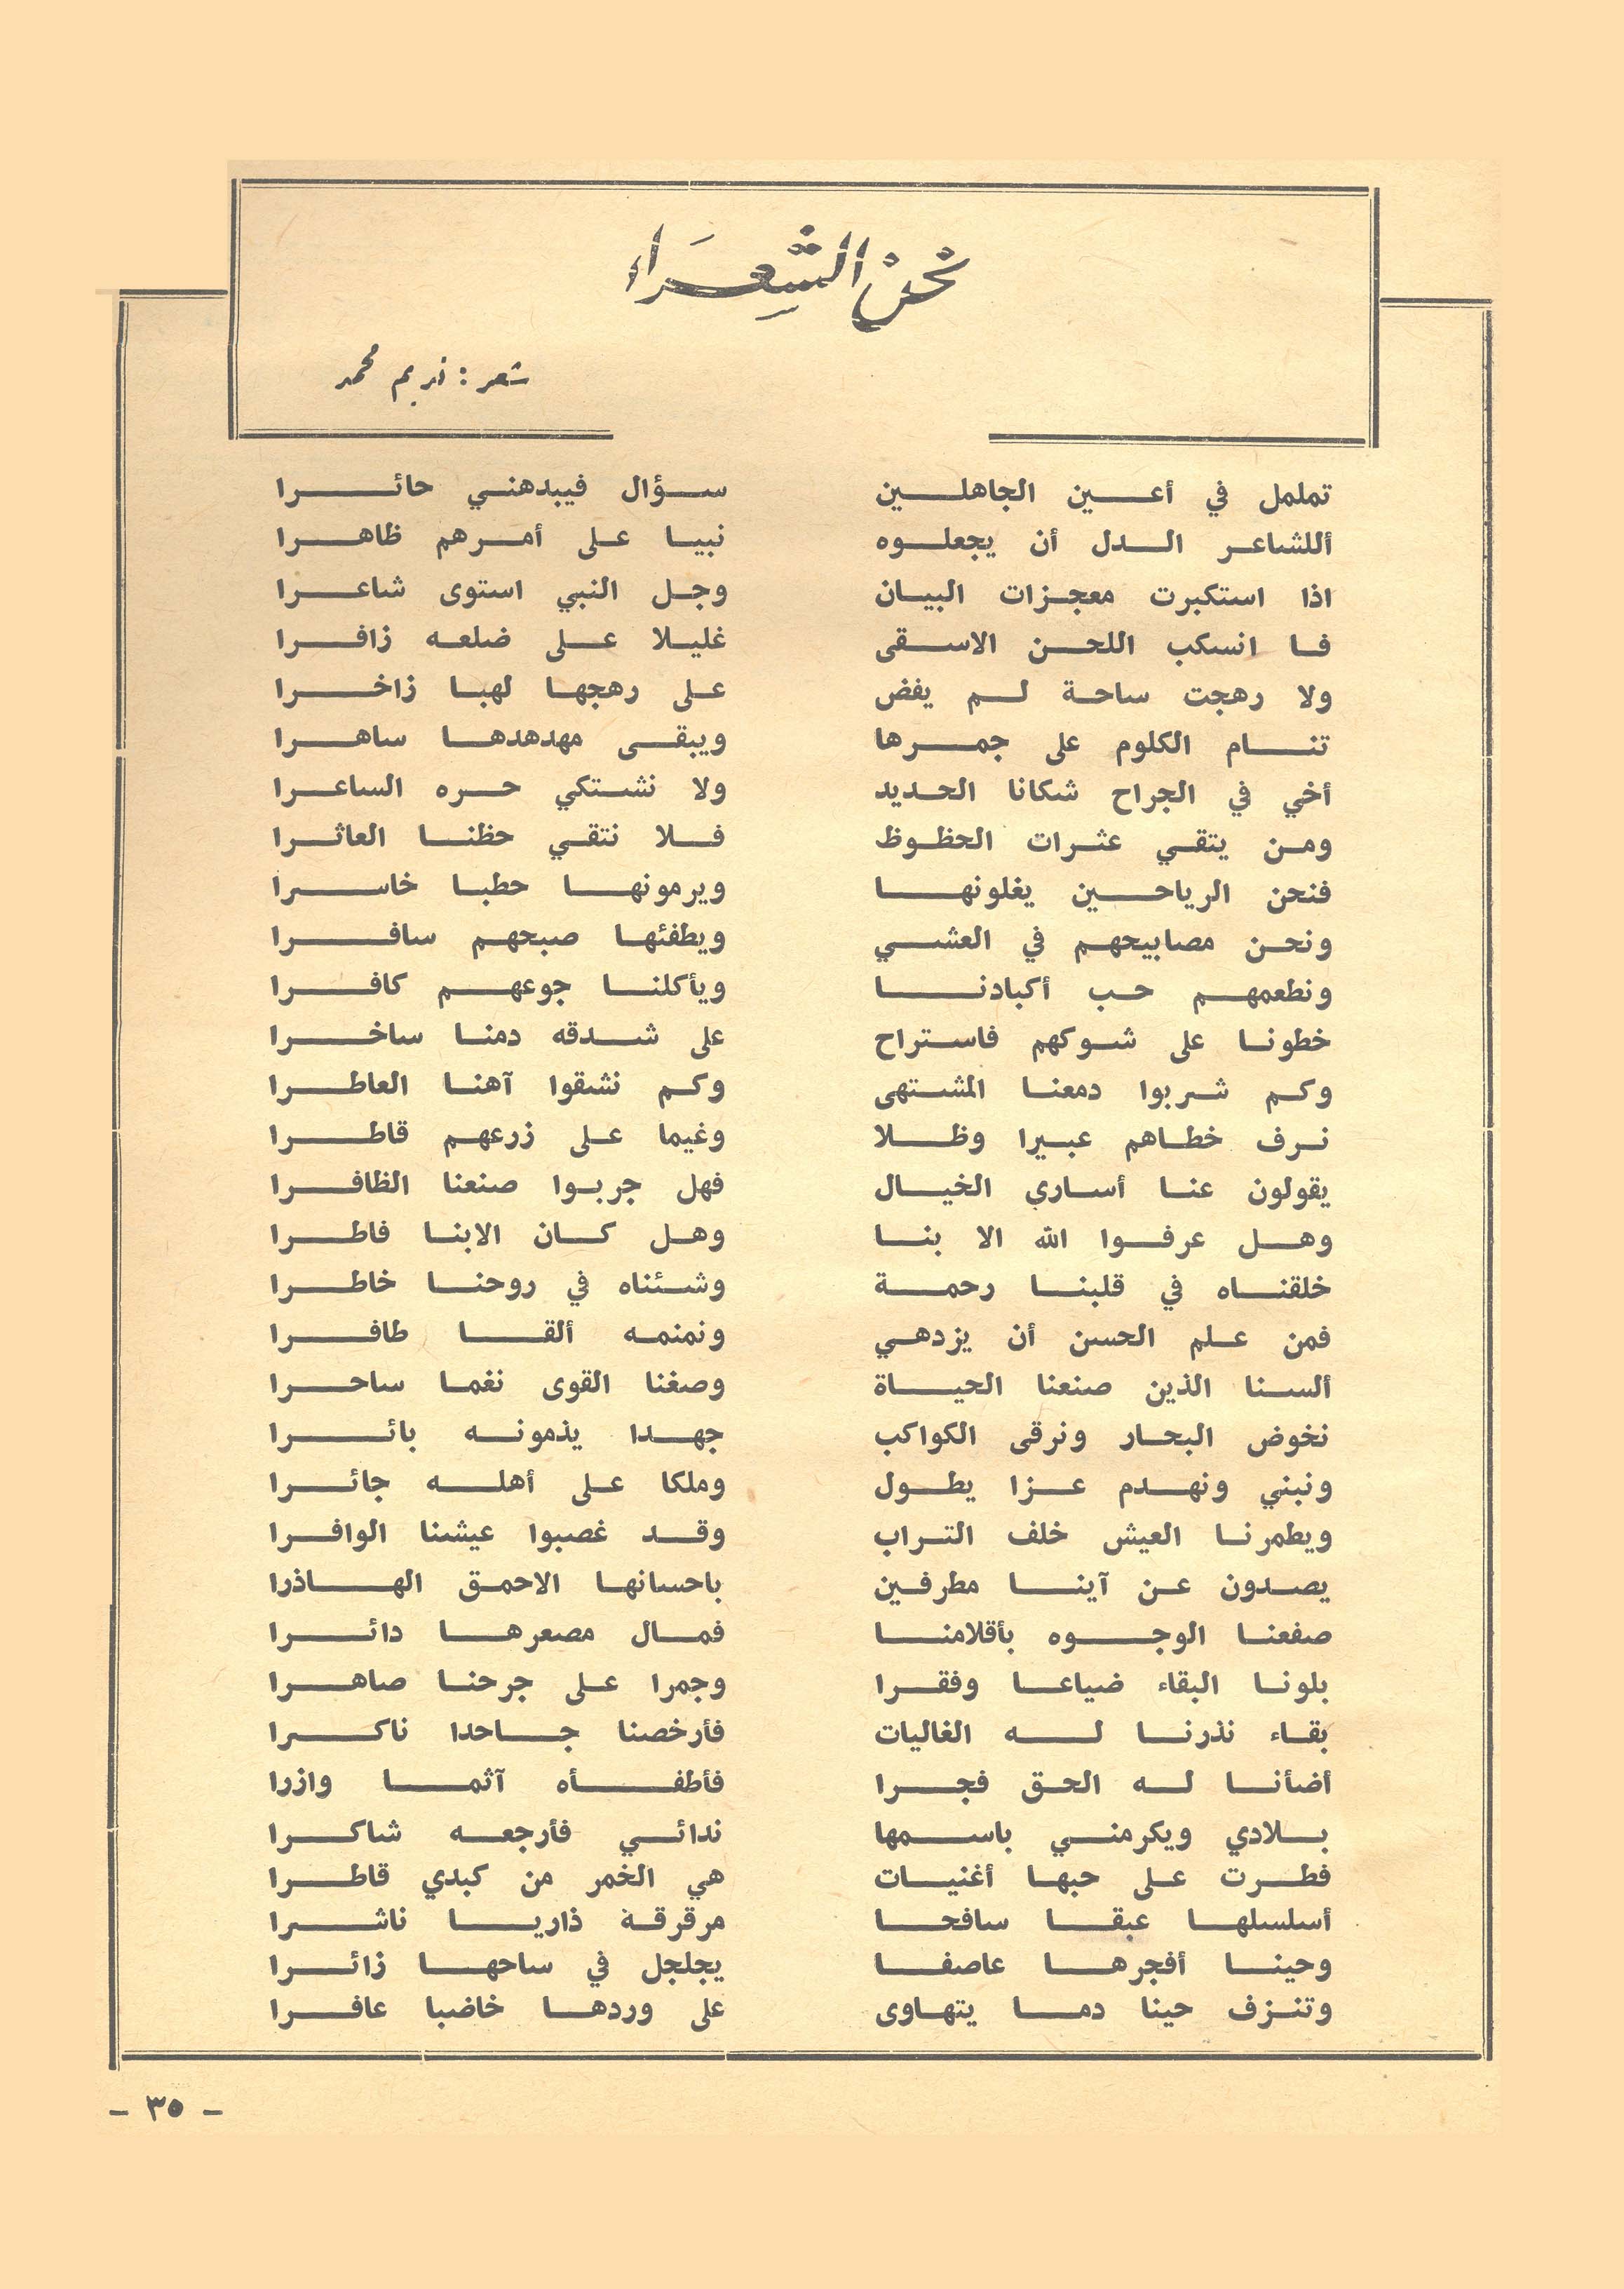 نحن الشعراء
شعر : نديم محمد
تململ في أعين الجاهلين سؤال فيبدهني حائرا
أللشاعر الدل أن يجعلوه نبيا على أمرهم ظاهرا
اذا استكبرت معجزات البيان وجل النبي استوى شاعرا
فما انسكب اللحن الاسقى غليلا على ضلعه زافرا
ولا رهجت ساحة لم يفض على رهجها لهبا زاخرا
تنام الكلوم على جمرها ويبقى مهدهدها ساهرا
أخي في الجراح شكانا الحديد ولا نشتكي حره الساعرا
ومن يتقي عثرات الحظوظ فلا نتقي حظنا العاثرا
فنحن الرياحين يغلونها ويرمونها حطبا خاسرا
ونحن مصابيحهم في العشي ويطفئها صبحهم سافرا
ونطعمهم حب أكبادنا ويأكلنا جوعهم كافرا
خطونا على شوكهم فاستراح على شدقه دمنا ساخرا
وكم شربوا دمعنا المشتهى وكم نشقوا آهنا العاطرا
نرف خطاهم عبيرا وظلا وغيما على زرعهم قاطرا
يقولون عنا أساري الخيال فهل جربوا صنعنا الظافرا
وهل عرفوا الله الا بنا وهل كان الابنا فاطرا
خلقناه في قلبنا رحمة وشئناه في روحنا خاطرا
فمن علم الحسن أن يزدهي ونمنمه ألقا طافرا
ألسنا الذين صنعنا الحياة وصغنا القوى نغما ساحرا
نخوض البحار ونرقى الكواكب جهدا يذمونه بائرا
ونبني ونهدم عزا يطول وملكا على أهله جائرا
ويطمرنا العيش خلف التراب وقد غصبوا عيشنا الوافرا
يصدون عن آينا مطرفين باحسانها الاحمق الهاذرا
صفعنا الوجوه بأقلامنا فمال مصعرها دائرا
بلونا البقاء ضياعا وفقرا وجمرا على جرحنا صاهرا
بقاء نذرنا له الغاليات فأرخصنا جاحدا ناكرا
أضأنا له الحق فجرا فأطفأه آثما وازرا
بلادي ويكرمني باسمها ندائي فأرجعه شاكرا
فطرت على حبها أغنيات هي الخمر من كبدي قاطرا
أسلسلها عبقا سافحا مرقرقة ذاريا ناشرا
وحينا أفجرها عاصفا يجلجل في ساحها زائرا
وتنزف حينا دما يتهاوى على وردها خاضبا عافرا
- ٣٥ -